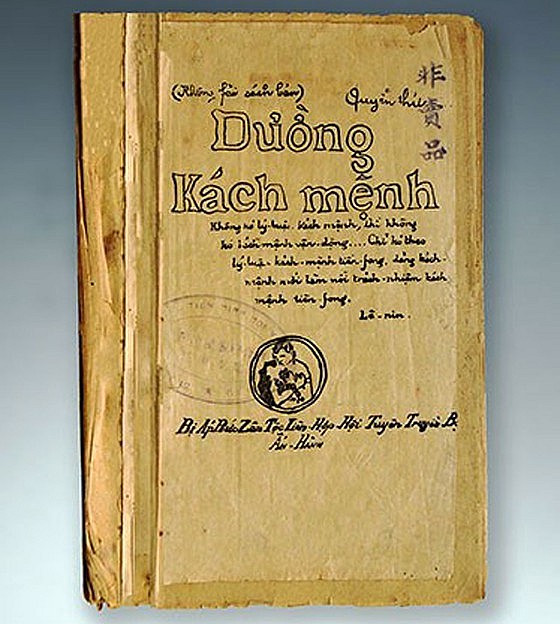 (Không fải sách bán)
Quyển thứ
非賣品
Đường
Kách mệnh
Không có lý-luận kách mệnh, thì không
có kách mệnh vận-động.... Chỉ có theo
lý-luận kách-mệnh tiền-fong, đảng kách-
mệnh mới làm nổi trách-nhiệm kách
mệnh tiền-fong.
Lê-nin.
Bị Áp Bức Zân Tộc Liên-Hợp Hội Tuyên Truyền Bộ
Ấn-Hành